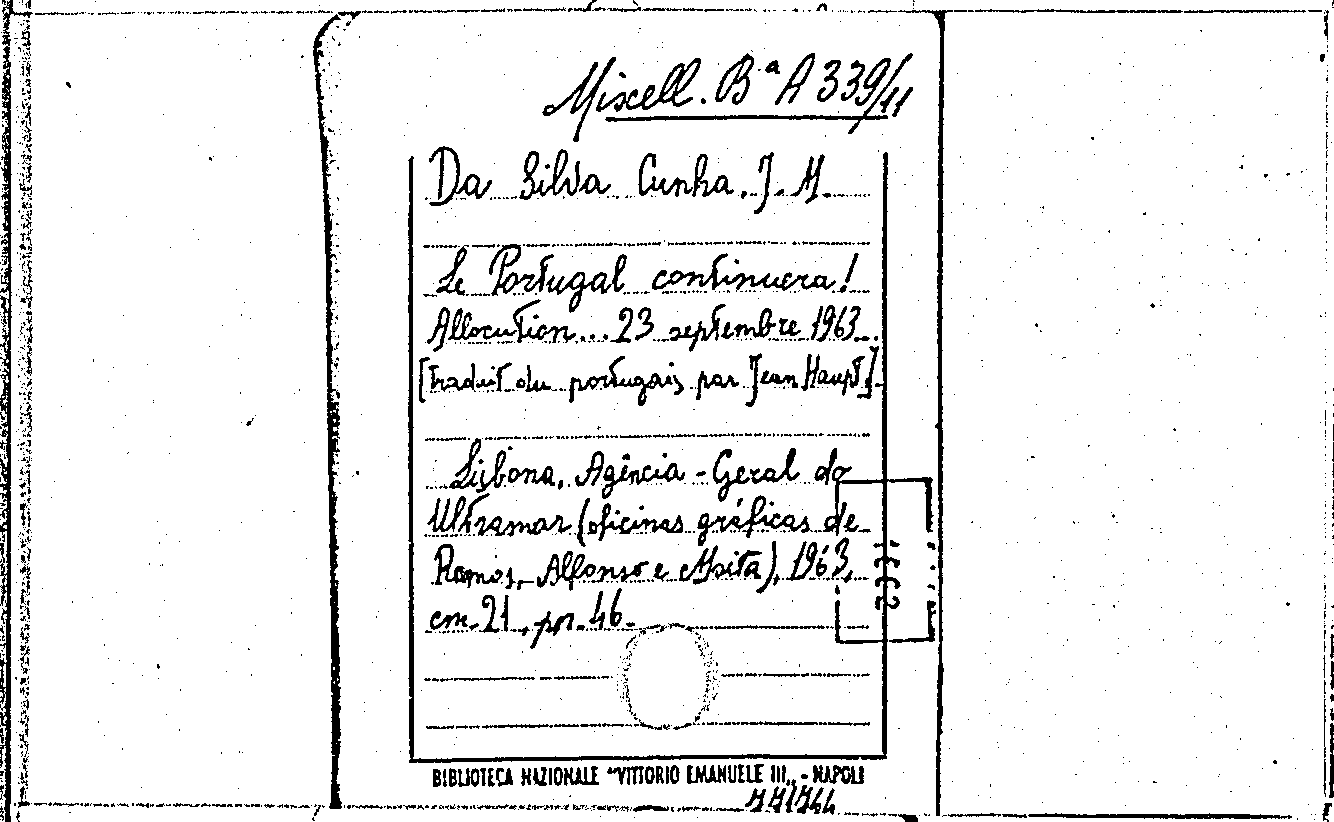 Miscell. Bª A 339/11
Da Silva Cunha. J. M.
Le Portugal continuera!
Allocution... 23 septembre 1963.
[Traduit du portugais par Jean Haupt].
Lisbona, Agência-Geral do
Ultramar (oficinas gráficas de
Ramos, Alfonso e Moita), 1963,
cm. 21, pp. 46.
BIBLIOTECA NAZIONALE "VITTORIO EMANUELE III„ - NAPOLI